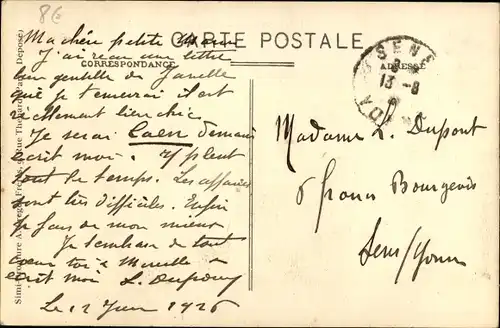 8€
CARTE POSTALE
CORRESPONDANCE
ADRESSE
SENS
13 - 8
Ma chère petite
J'ai reçu une lettre
bien gentille de
que je t'enverrai il est
réellement bien chic.
Je serai Caen demain
écrit moi. Il pleut
tout le temps. Les affaires
sont très difficiles. Enfin
je fais de mon mieux
Je t'embrasse de tout
coeur toi &
écrit moi L. Dupont
Le 12 1926
Madame L. Dupont
6 Bourgeois
Sens/Yonne